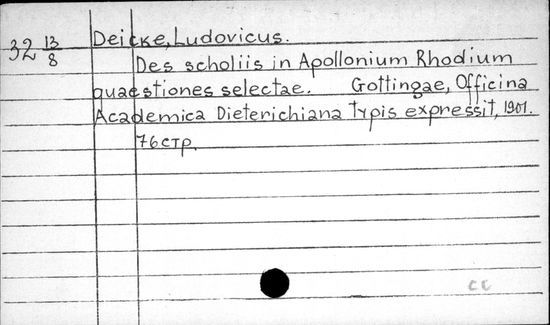 Deicke, Ludovicus.
32 13/8
Des scholiis in Apollonium Rhodium
quaestiones selectae. Gottingae, Officina
Academica Dieterichiana typis expressit, 1901.
76 стр.
cc